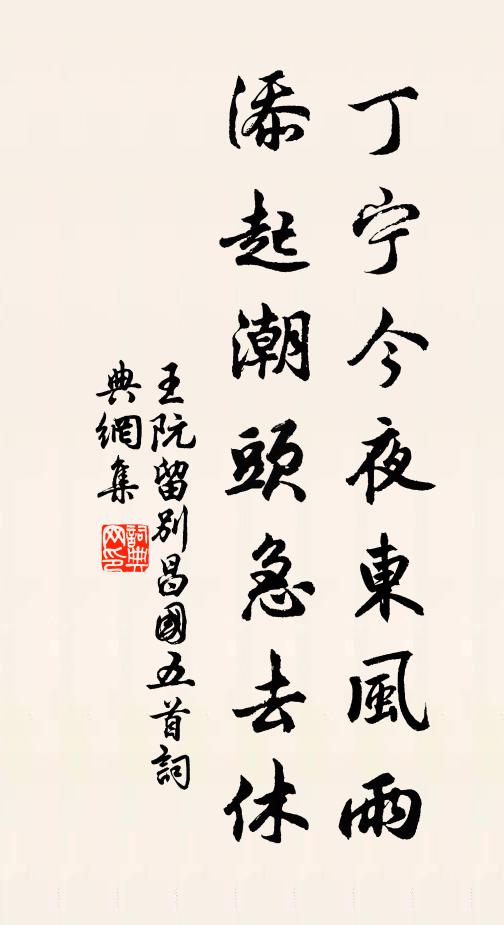 丁宁今夜東風雨
添起潮頭急去休
王阮留別昌國五首詞
典網集
詞典网印